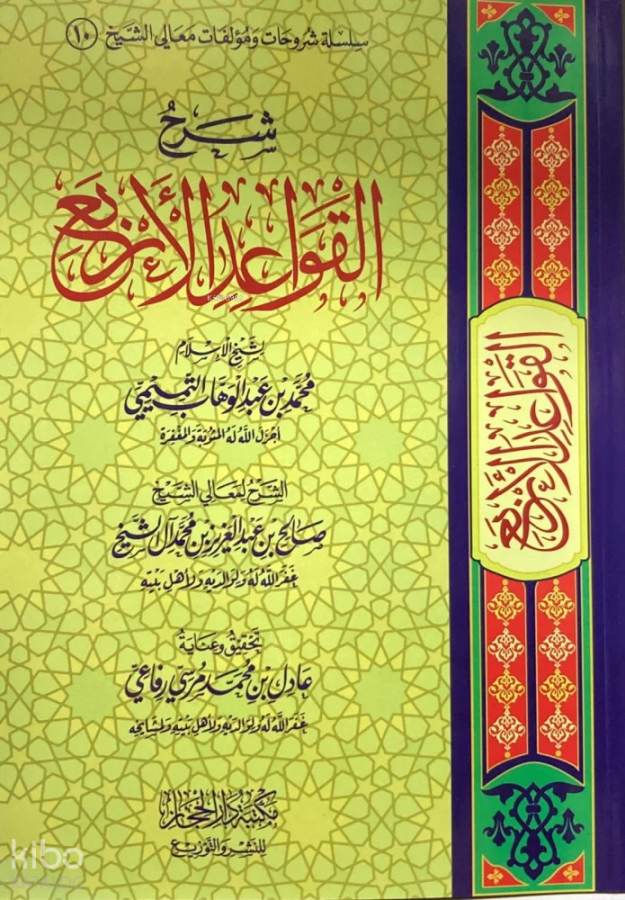 سلسلة شروحات ومؤلفات معالي الشيخ (١٠)
شرح
القواعد الأربع
لشيخ الإسلام
محمد بن عبد الوهاب التميمي
أجزل الله له المثوبة والمغفرة
الشرح لمعالي الشيخ
صالح بن عبد العزيز بن محمد آل الشيخ
غفر الله له ولوالديه ولأهل بيته
تحقيق وعناية
عادل بن محمد مرسي رفاعي
غفر الله له ولوالديه ولأهل بيته ولمشايخه
مكتبة دار الحجاز
للنشر والتوزيع
القواعد الأربع
kibo